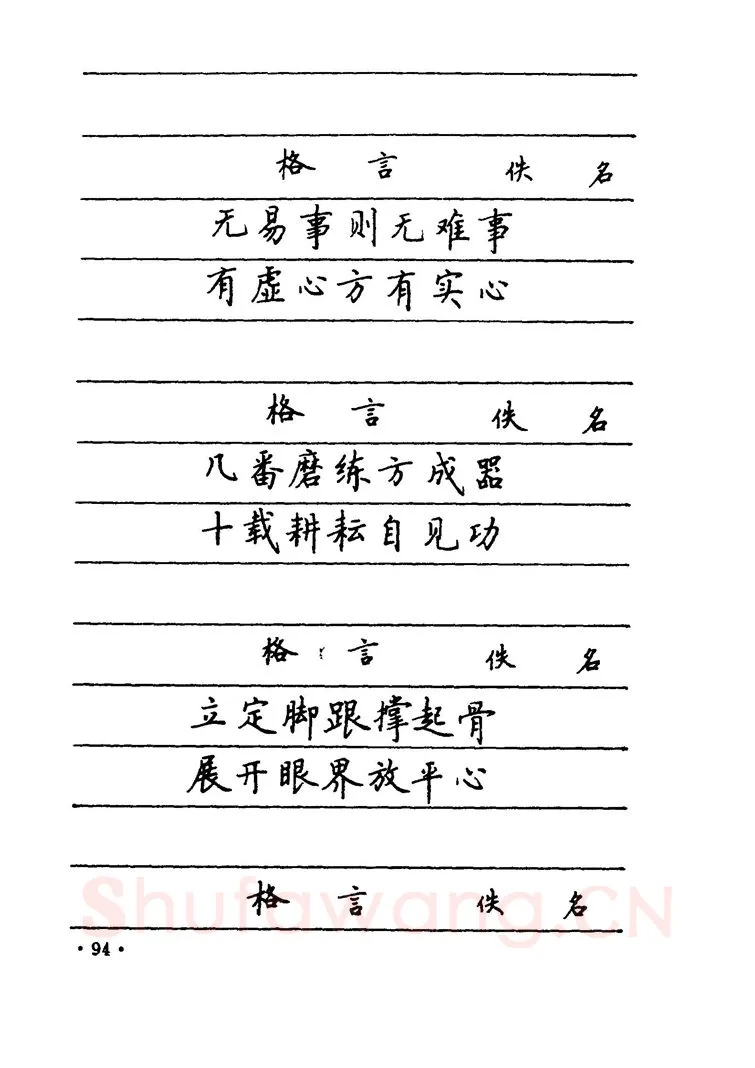 格言 佚名
无易事则无难事
有虚心方有实心
格言 佚名
几番磨练方成器
十载耕耘自见功
格言 佚名
立定脚跟撑起骨
展开眼界放平心
格言 佚名
Shufawang.CN
·94·